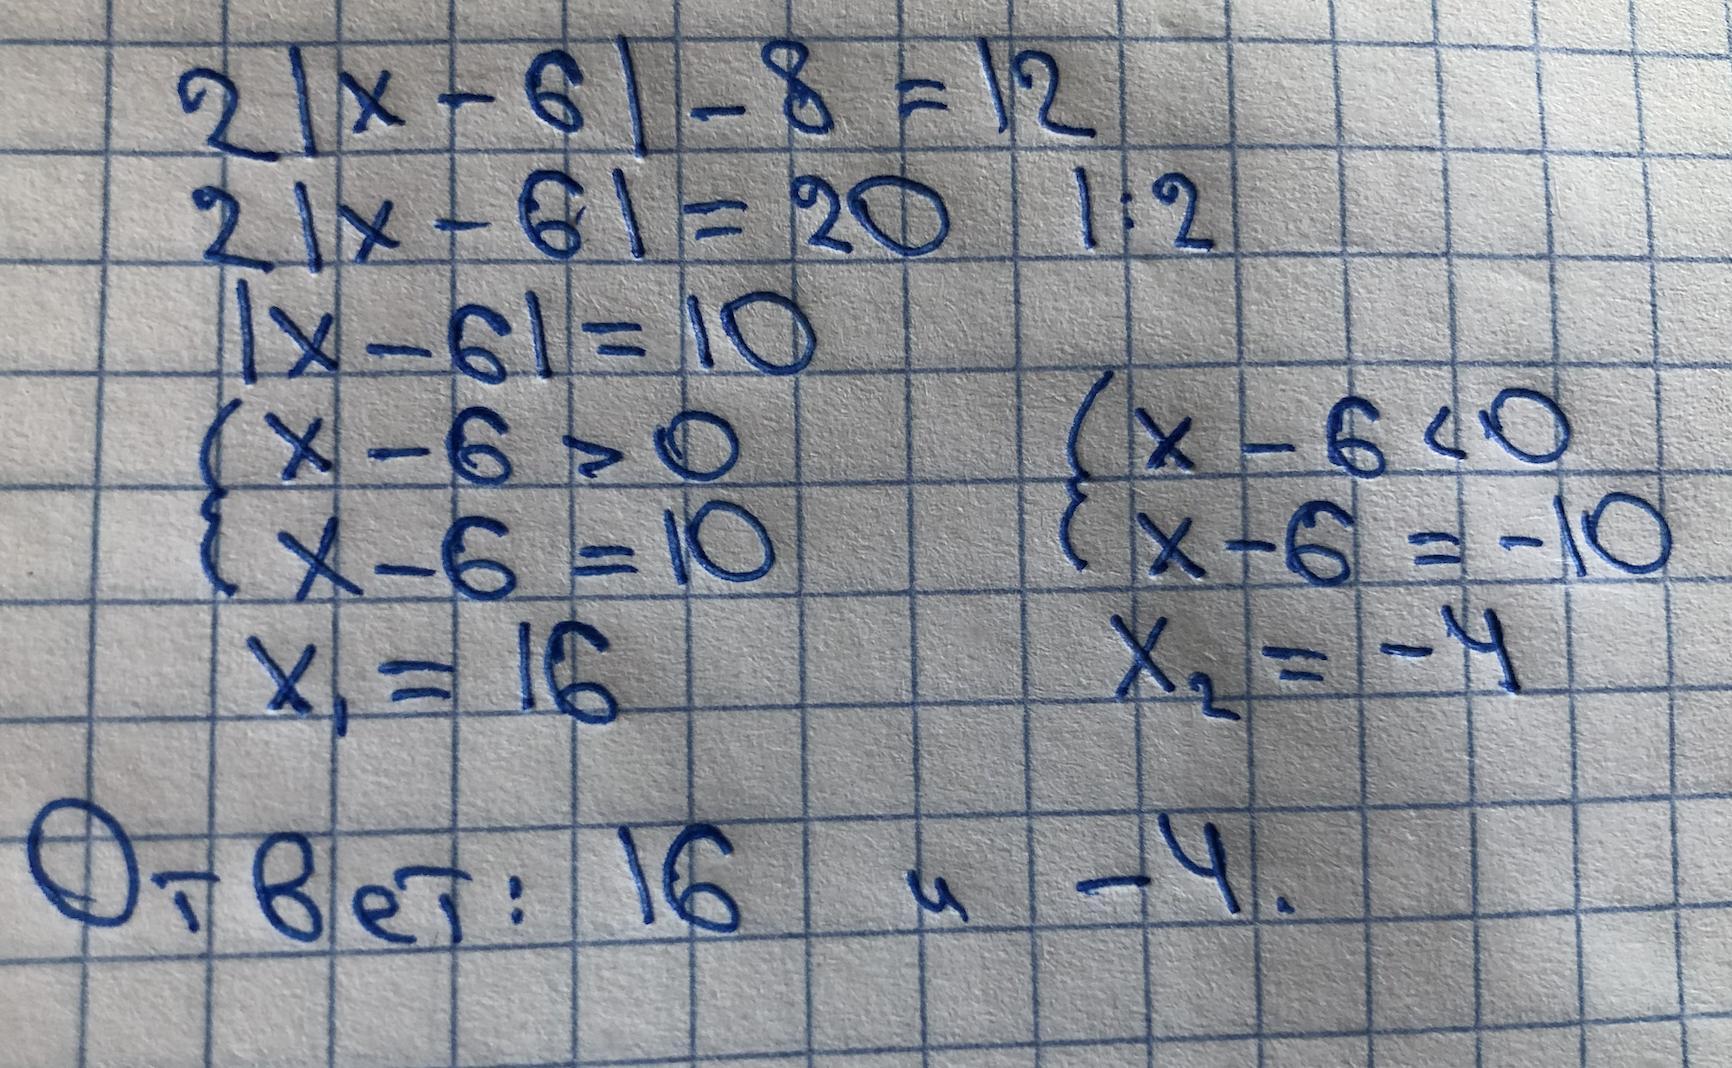 2|x - 6| - 8 = 12
2|x - 6| = 20 |:2
|x - 6| = 10
{ x - 6 > 0 { x - 6 < 0
x - 6 = 10 x - 6 = -10
x₁ = 16 x₂ = -4
Ответ: 16 и -4.